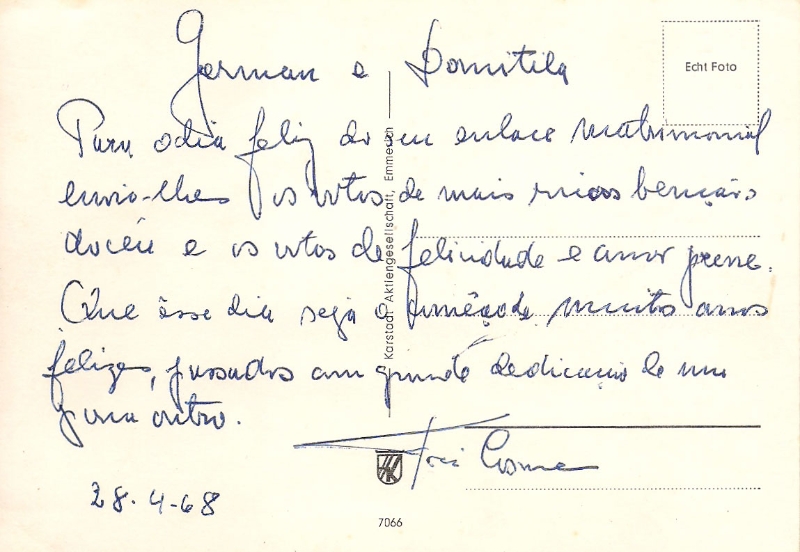 German e Domitila
Echt Foto
Para o dia feliz do seu enlace matrimonial
envio-lhes os votos de mais ricas bençãos
do céu e os votos de felicidade e amor perene.
Que êsse dia seja o comêço de muitos anos
felizes, passados em grande dedicação de um
para outro.
Cosme
28.4-68
Karstadt Aktiengesellschaft, Emmerich
7066